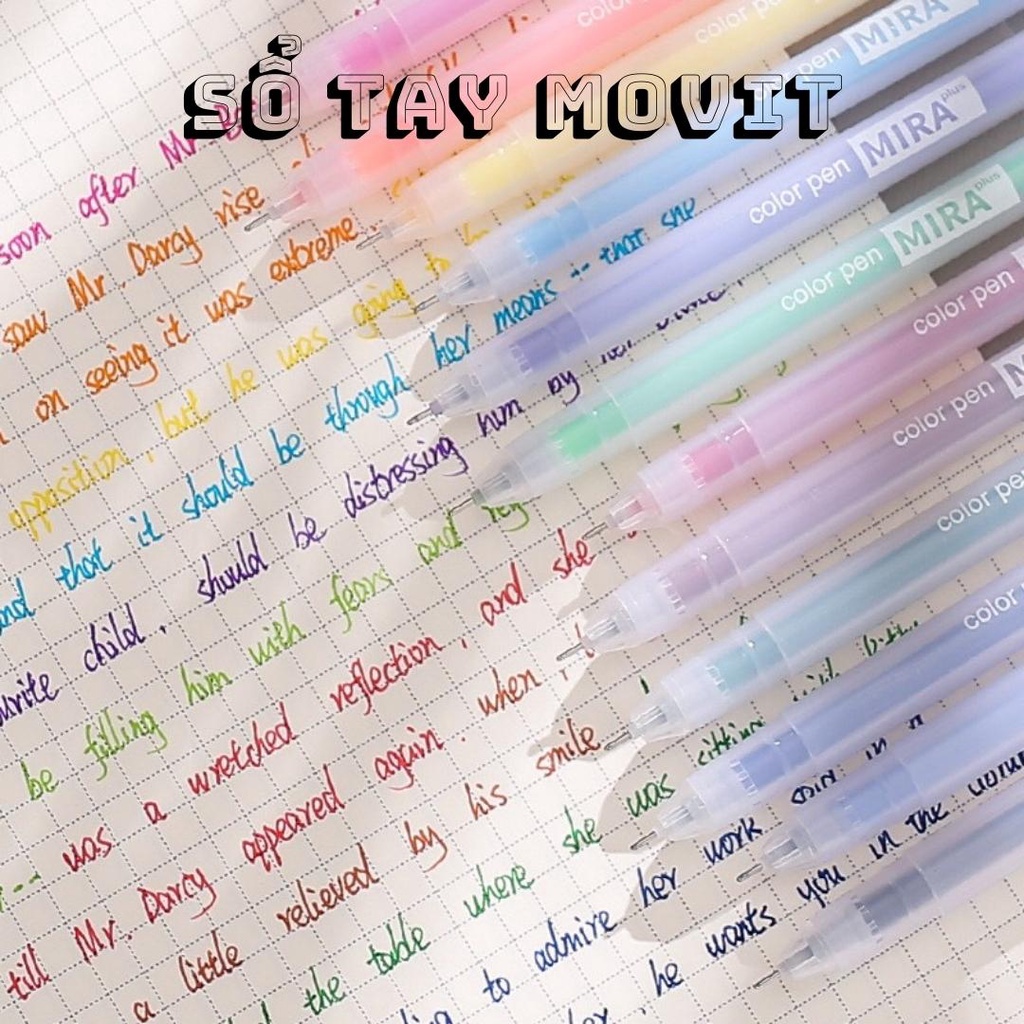 SỔ TAY MOVIT
soon after Mr.
saw Mr. Darcy rise
on seeing it was extreme.
opposition, but he was going to
and that it should be through her means -- that she
urite child, should be distressing him by her
be filling him with fears and
was a wretched reflection, and she
till Mr. Darcy appeared again. when
a little relieved by his smile
the table where she was sitting with
to admire her work
her, he wants you in the
color pen
color pen MIRA
color pen MIRA plus
color pen MIRA plus
color pen
color pen
color pen
color